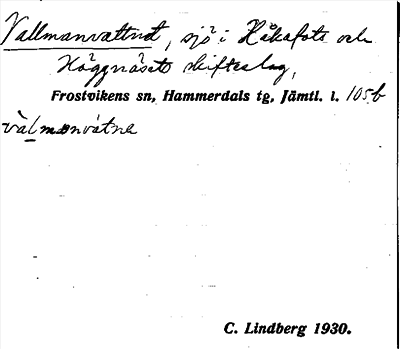 Vallmanvattnet, sjö i Håkafots och
Häggnäsets skifteslag,
Frostvikens sn, Hammerdals tg, Jämtl. l. 105b
válmanvátne
C. Lindberg 1930.